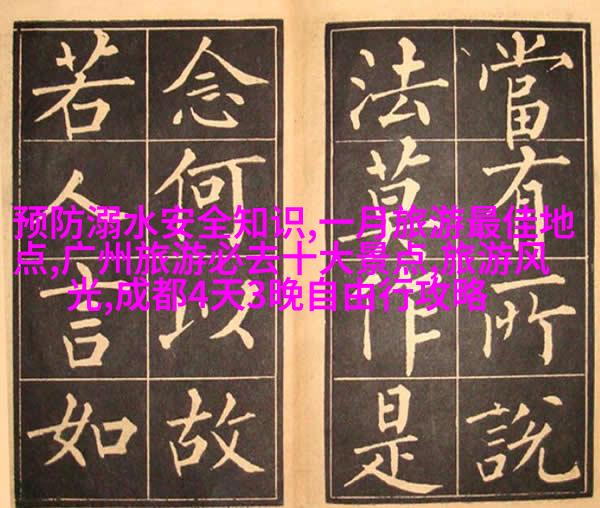 當有所說
法莫作是
念何以故
若人言如
预防溺水安全知识,一月旅游最佳地
点,广州旅游必去十大景点,旅游风
光,成都4天3晚自由行攻略